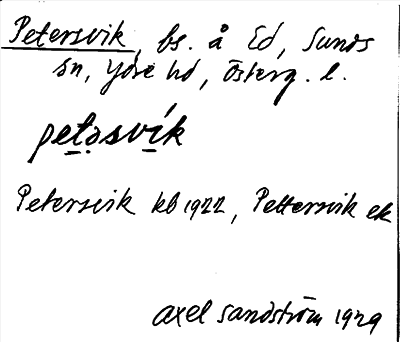 Petersvik, bs. å Ed, Sunds
sn, Ydre hd, Österg. l.
petəsvík
Petersvik kb 1922, Pettersvik ek
Axel Sandström 1929